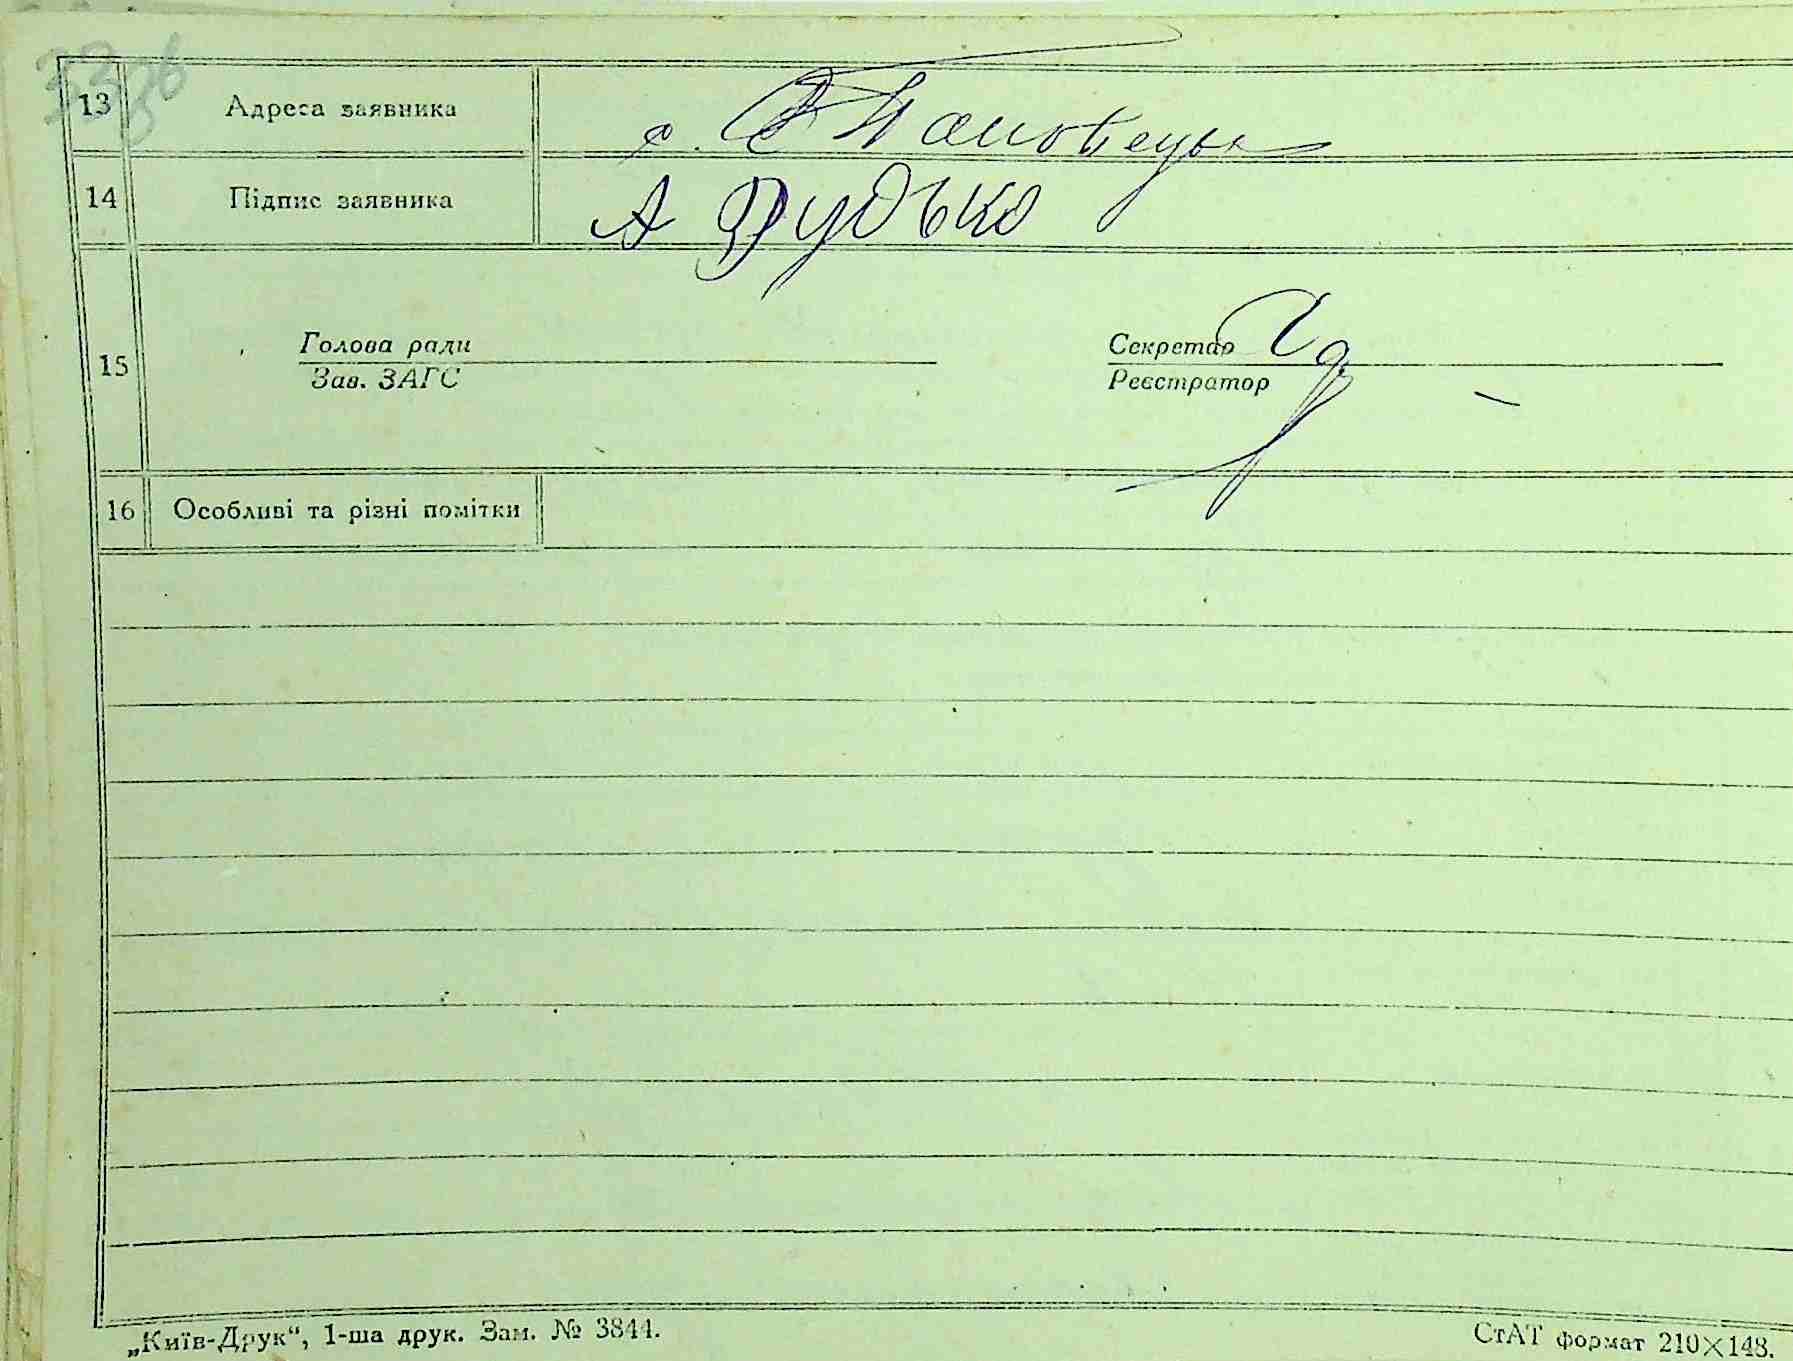 33зв
13 Адреса заявника с. Пановецьк
14 Підпис заявника А Дудько
15 Голова ради Секретар
Зав. ЗАГС Реєстратор
16 Особливі та різні помітки
„Київ-Друк“, 1-ша друк. Зам. № 3844. СтАТ формат 210×148.